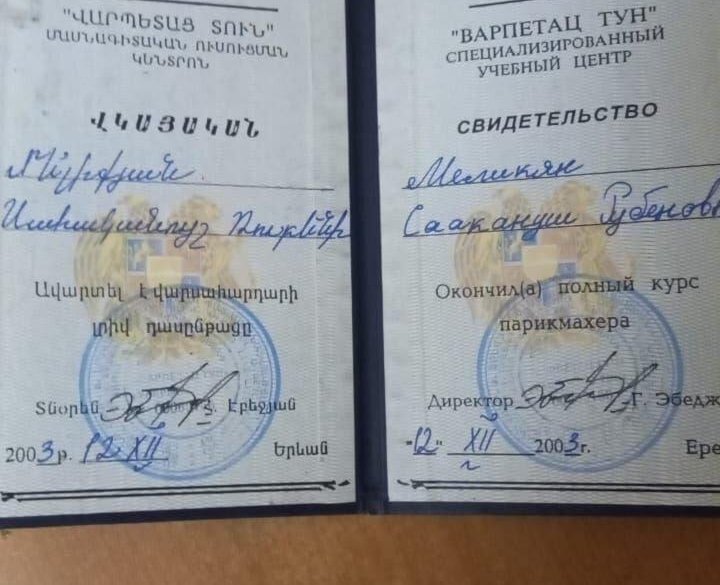 "ՎԱՐՊԵՏԱՑ ՏՈՒՆ"
ՄԱՍՆԱԳԻՏԱԿԱՆ ՈՒՍՈՒՑՄԱՆ
ԿԵՆՏՐՈՆ
ՎԿԱՅԱԿԱՆ
Մելիքյան
Սահականուշ Ռուբենի
Ավարտել է վարսահարդարի
լրիվ դասընթացը
Տնօրեն Գ. Էբեջյան
2003թ. 12 XII Երևան
"ВАРПЕТАЦ ТУН"
СПЕЦИАЛИЗИРОВАННЫЙ
УЧЕБНЫЙ ЦЕНТР
СВИДЕТЕЛЬСТВО
Меликян
Саакануш Рубенов
Окончил(а) полный курс
парикмахера
Директор Г. Эбедж
"12" XII 2003г. Ере